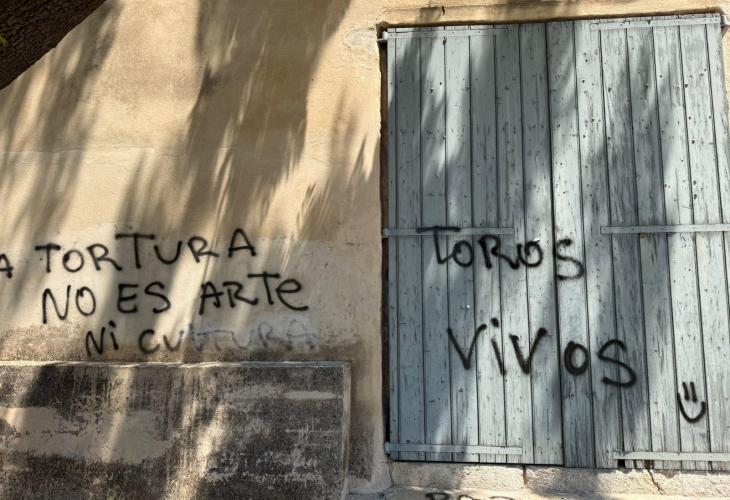 A TORTURA
NO ES ARTE
NI CULTURA
TOROS
VIVOS